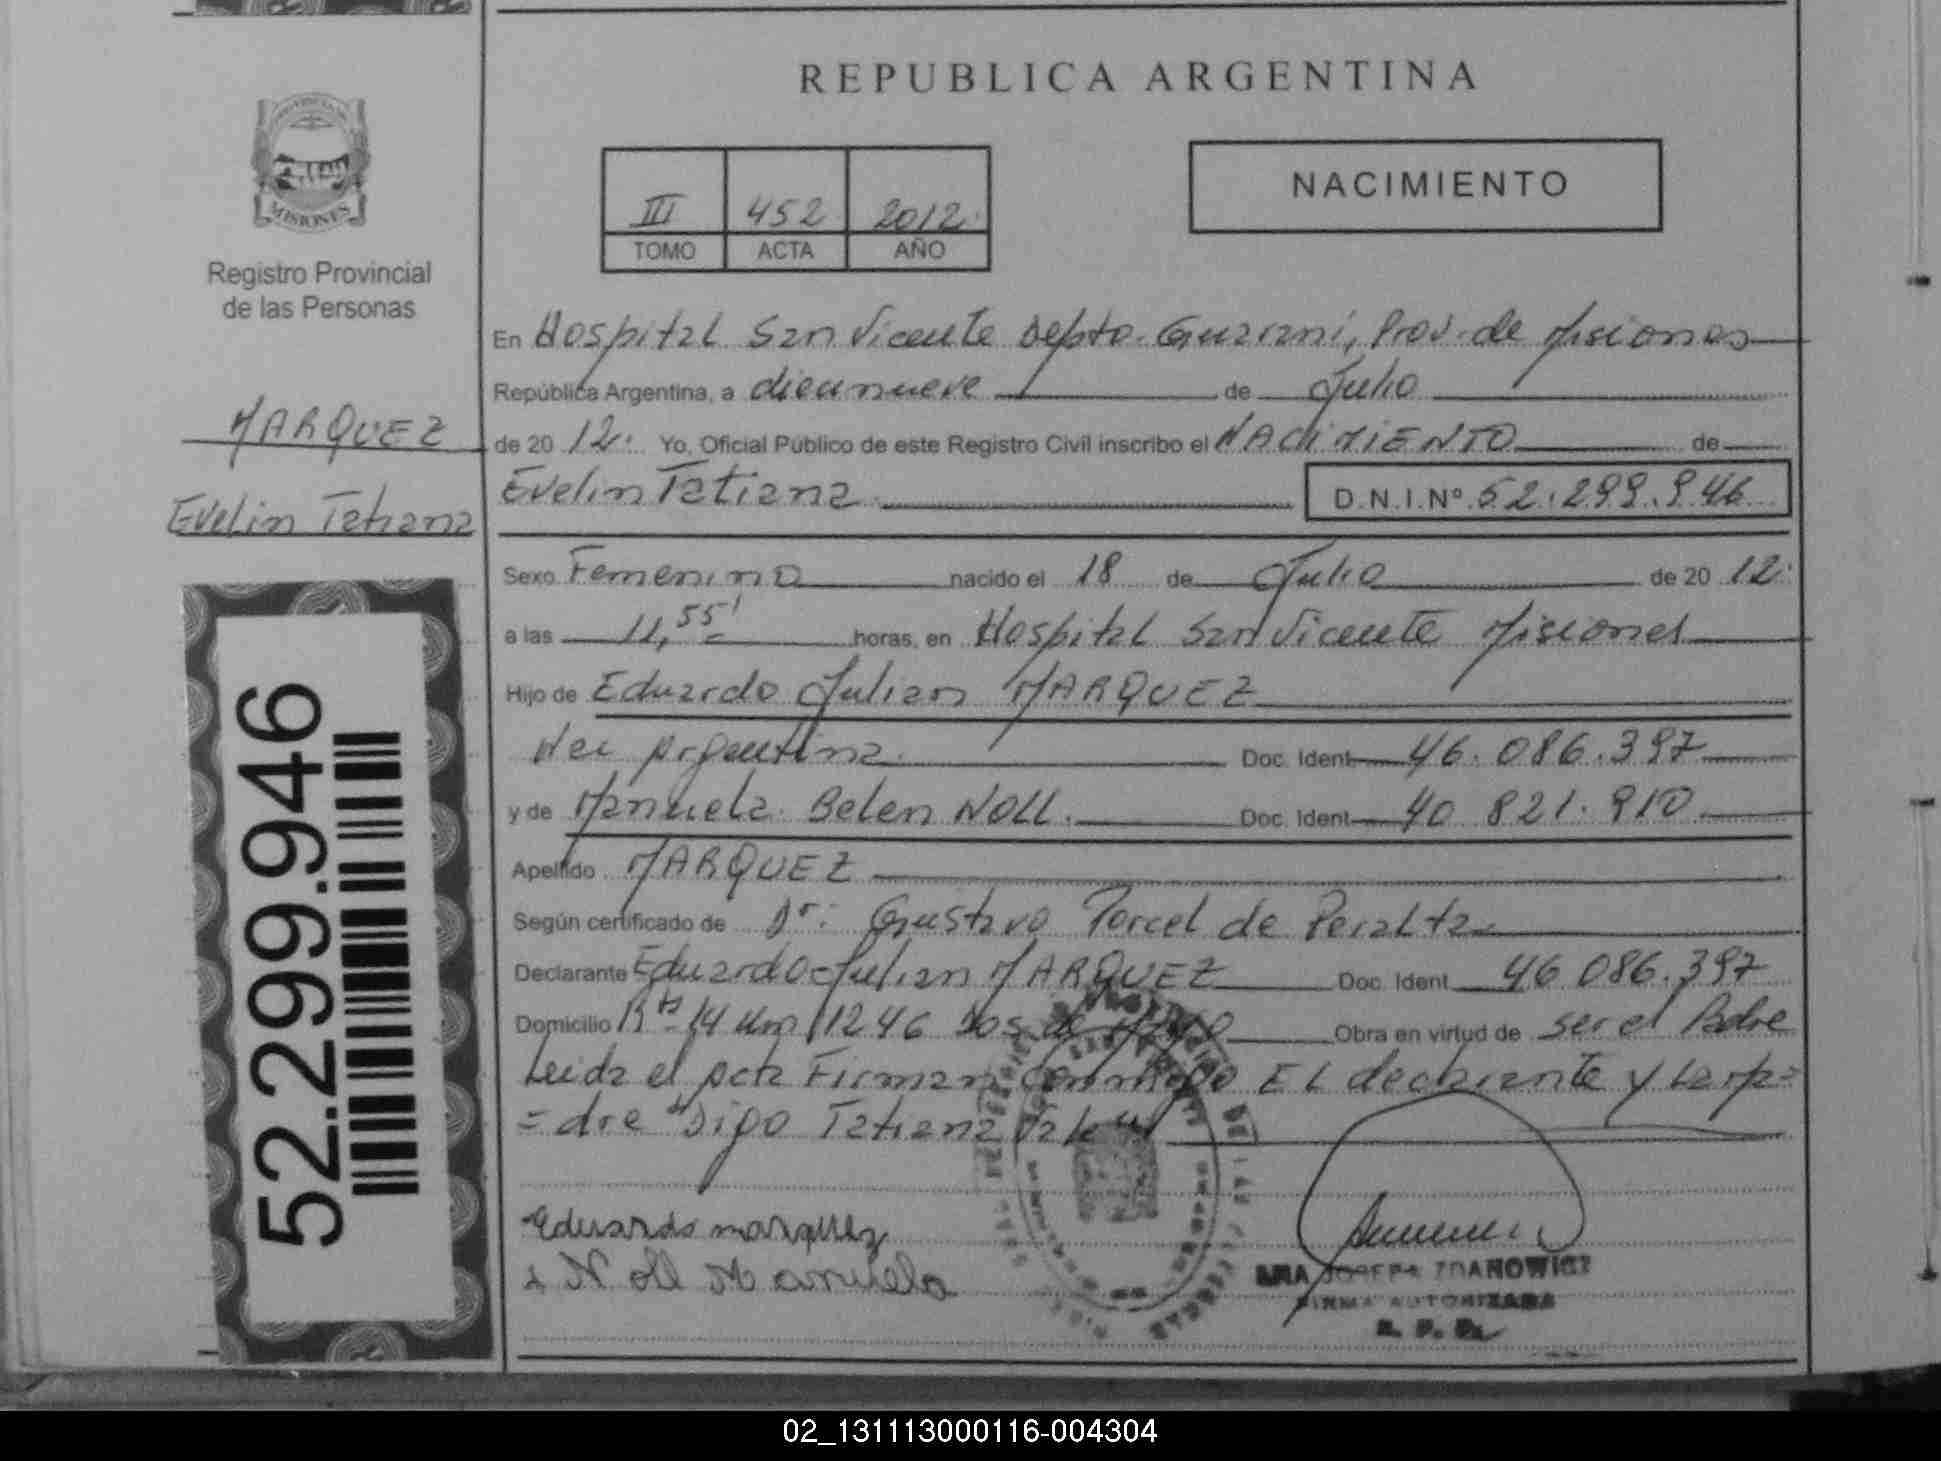 REPUBLICA ARGENTINA
NACIMIENTO
III 452 2012
TOMO ACTA AÑO
MISIONES
Registro Provincial
de las Personas
MARQUEZ
Evelin Tatiana
52.299.946
En Hospital San Vicente Depto. Guarani, Prov. de Misiones
República Argentina, a diecinueve de Julio
de 20 12. Yo, Oficial Público de este Registro Civil inscribo el NACIMIENTO de
Evelin Tatiana D.N.I.Nº 52.299.946
Sexo Femenino nacido el 18 de Julio de 20 12.
a las 11,55' horas, en Hospital San Vicente Misiones
Hijo de Eduardo Julian MARQUEZ
Argentina. Doc. Ident 46.086.397
y de Manuela Belen NOLL. Doc. Ident 40 821.910
Apellido MARQUEZ
Según certificado de Dr: Gustavo Porcel de Peralta
Declarante Eduardo Julian MARQUEZ Doc. Ident 46 086.397
Domicilio 14 Km 1246 Dos de Mayo Obra en virtud de ser el Padre
Leida el acta Firman conmigo El declarante y la ma=
=dre Digo Tatiana Vale
Eduardo marquez
Noll Manuela
ANA JOSEFA ZDANOWICZ
FIRMA AUTORIZADA
R. P. P.
02_131113000116-004304